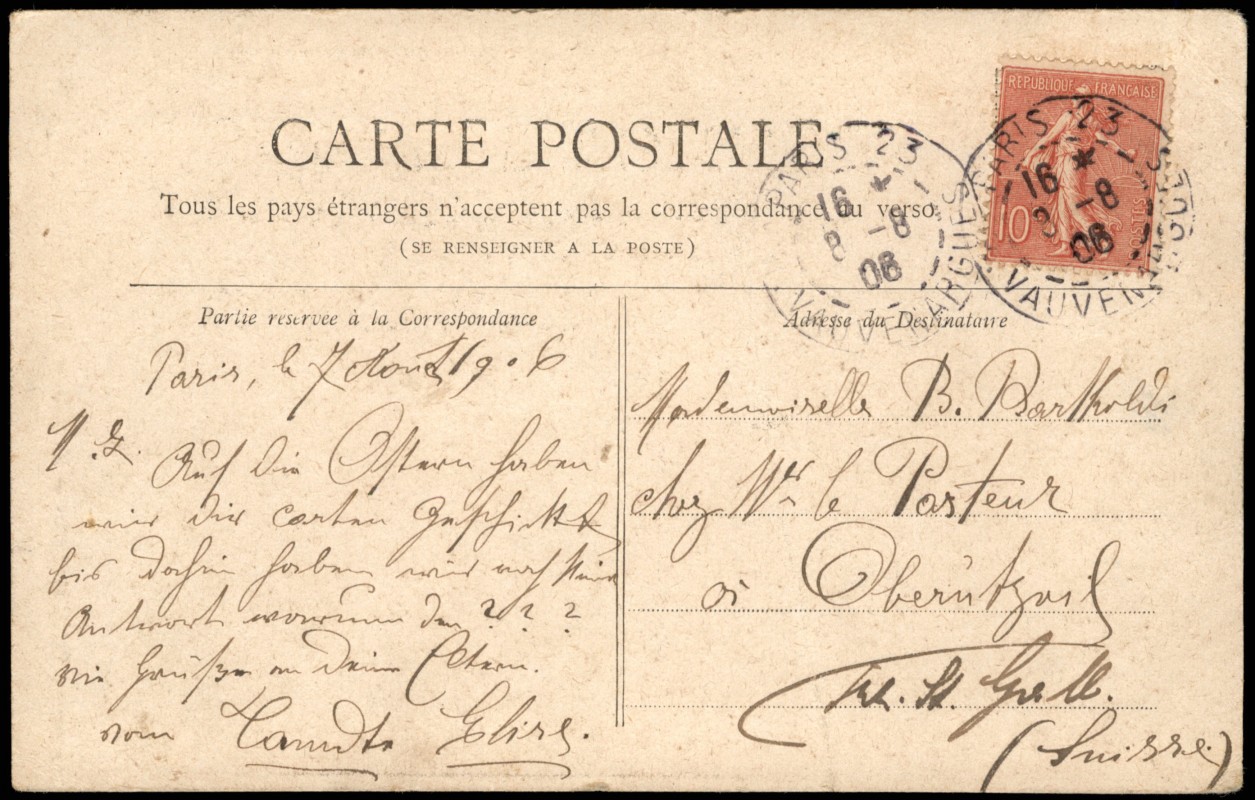 CARTE POSTALE
Tous les pays étrangers n'acceptent pas la correspondance au verso
(SE RENSEIGNER A LA POSTE)
REPUBLIQUE FRANÇAISE
10
POSTES
PARIS 23
16
8 -8
06
VAUVENARGUES
PARIS 23
16
8 -8
06
R. VAUVENARGUES
Partie réservée à la Correspondance
Paris, le 7 Aout 1906
Auf die Ostern haben
wir dir carten geschickt
bis dahin haben wir noch keine
Antwort warum den ? ? ?
vie Grüße an deine Eltern.
vom Tamdte Elise.
Adresse du Destinataire
Mademoiselle B. Bartholdi
chez Mr le Pasteur
à Oberützvil
St. Gall.
(Suisse.)